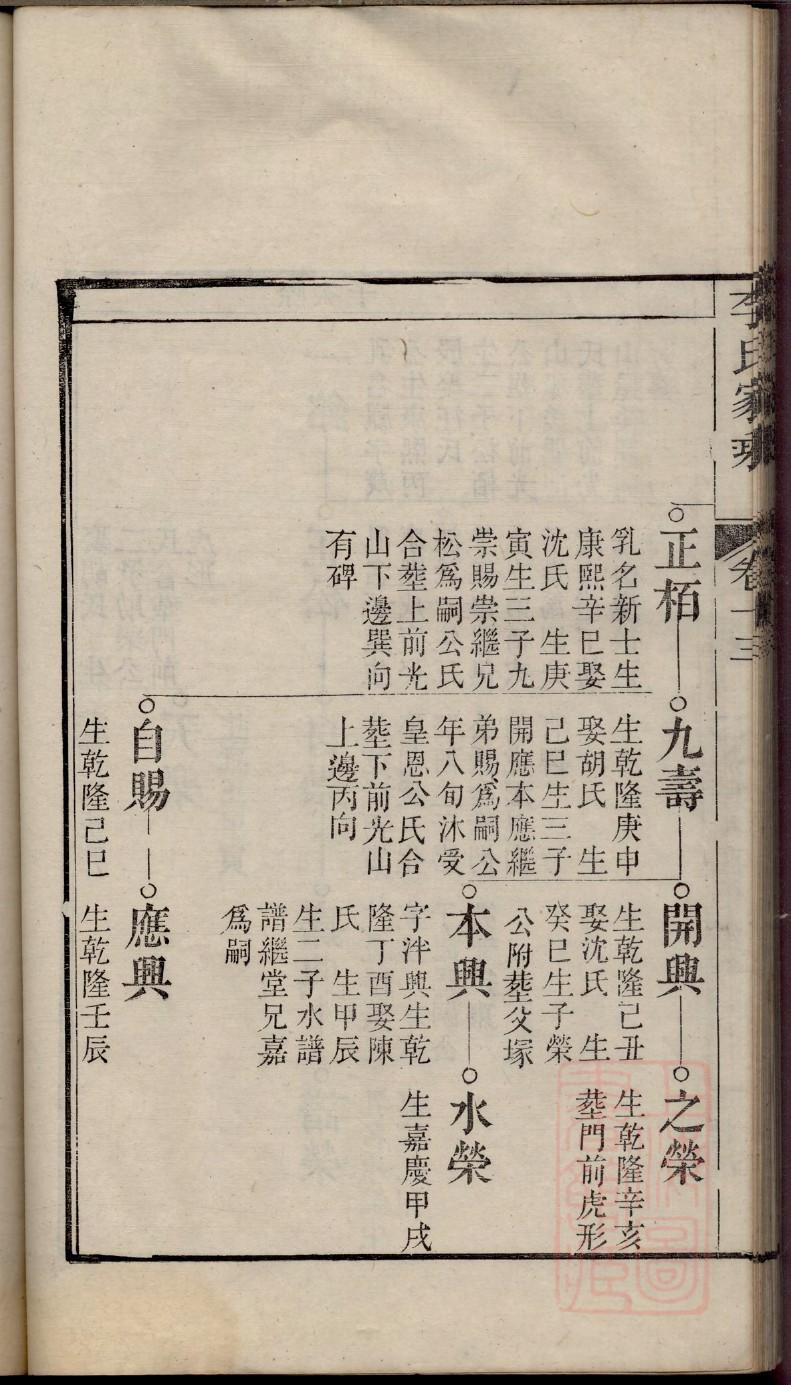 李氏家乘
卷十三
正栢
乳名新士生
康熙辛巳娶
沈氏 生庚
寅生三子九
崇賜崇繼兄
松爲嗣公氏
合塟上前光
山下邊巽向
有碑
九壽
生乾隆庚申
娶胡氏 生
己巳生三子
開應本應繼
弟賜爲嗣公
年八旬沐受
皇恩公氏合
塟下前光山
上邊丙向
開興
生乾隆己丑
娶沈氏 生
癸巳生子榮
公附塟父塚
之榮
生乾隆辛亥
塟門前虎形
本興
字泮興生乾
隆丁酉娶陳
氏 生甲辰
生二子水譜
譜繼堂兄嘉
爲嗣
水榮
生嘉慶甲戌
自賜
生乾隆己巳
應興
生乾隆壬辰